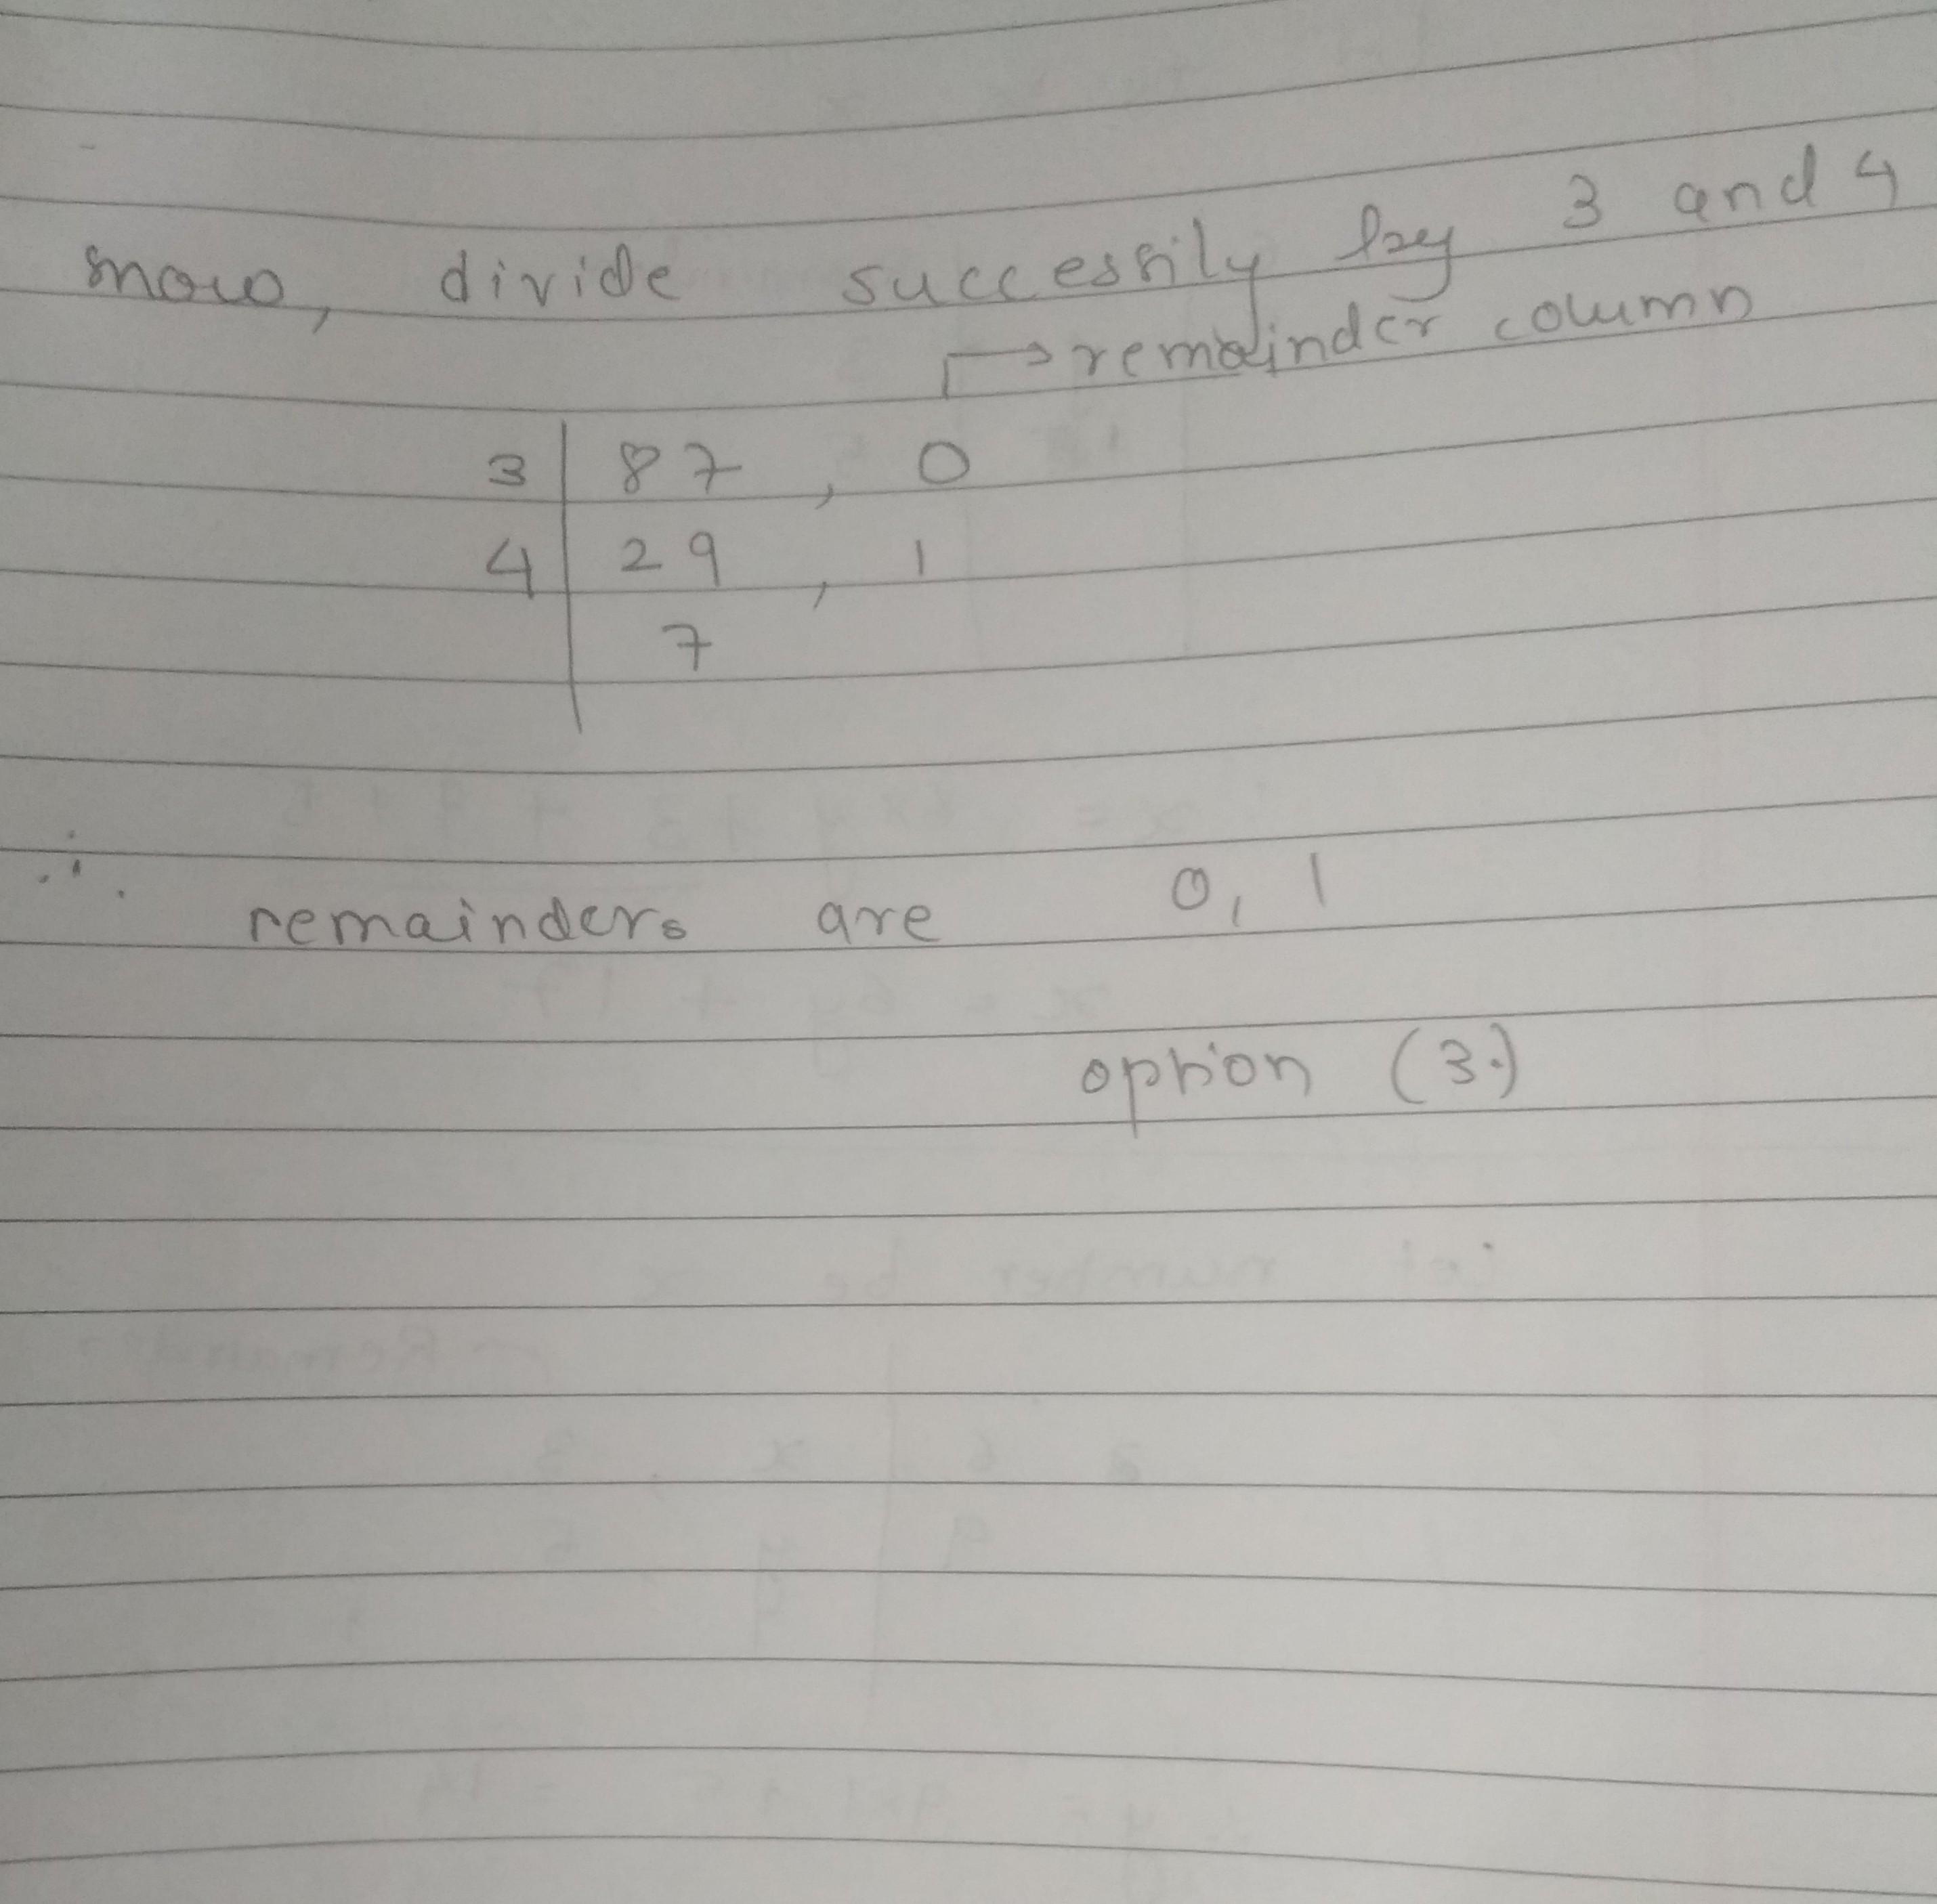 now, divide successily by 3 and 4
→ remainder column
3 | 87 , 0
4 | 29 , 1
7
∴ remainders are 0, 1
option (3.)